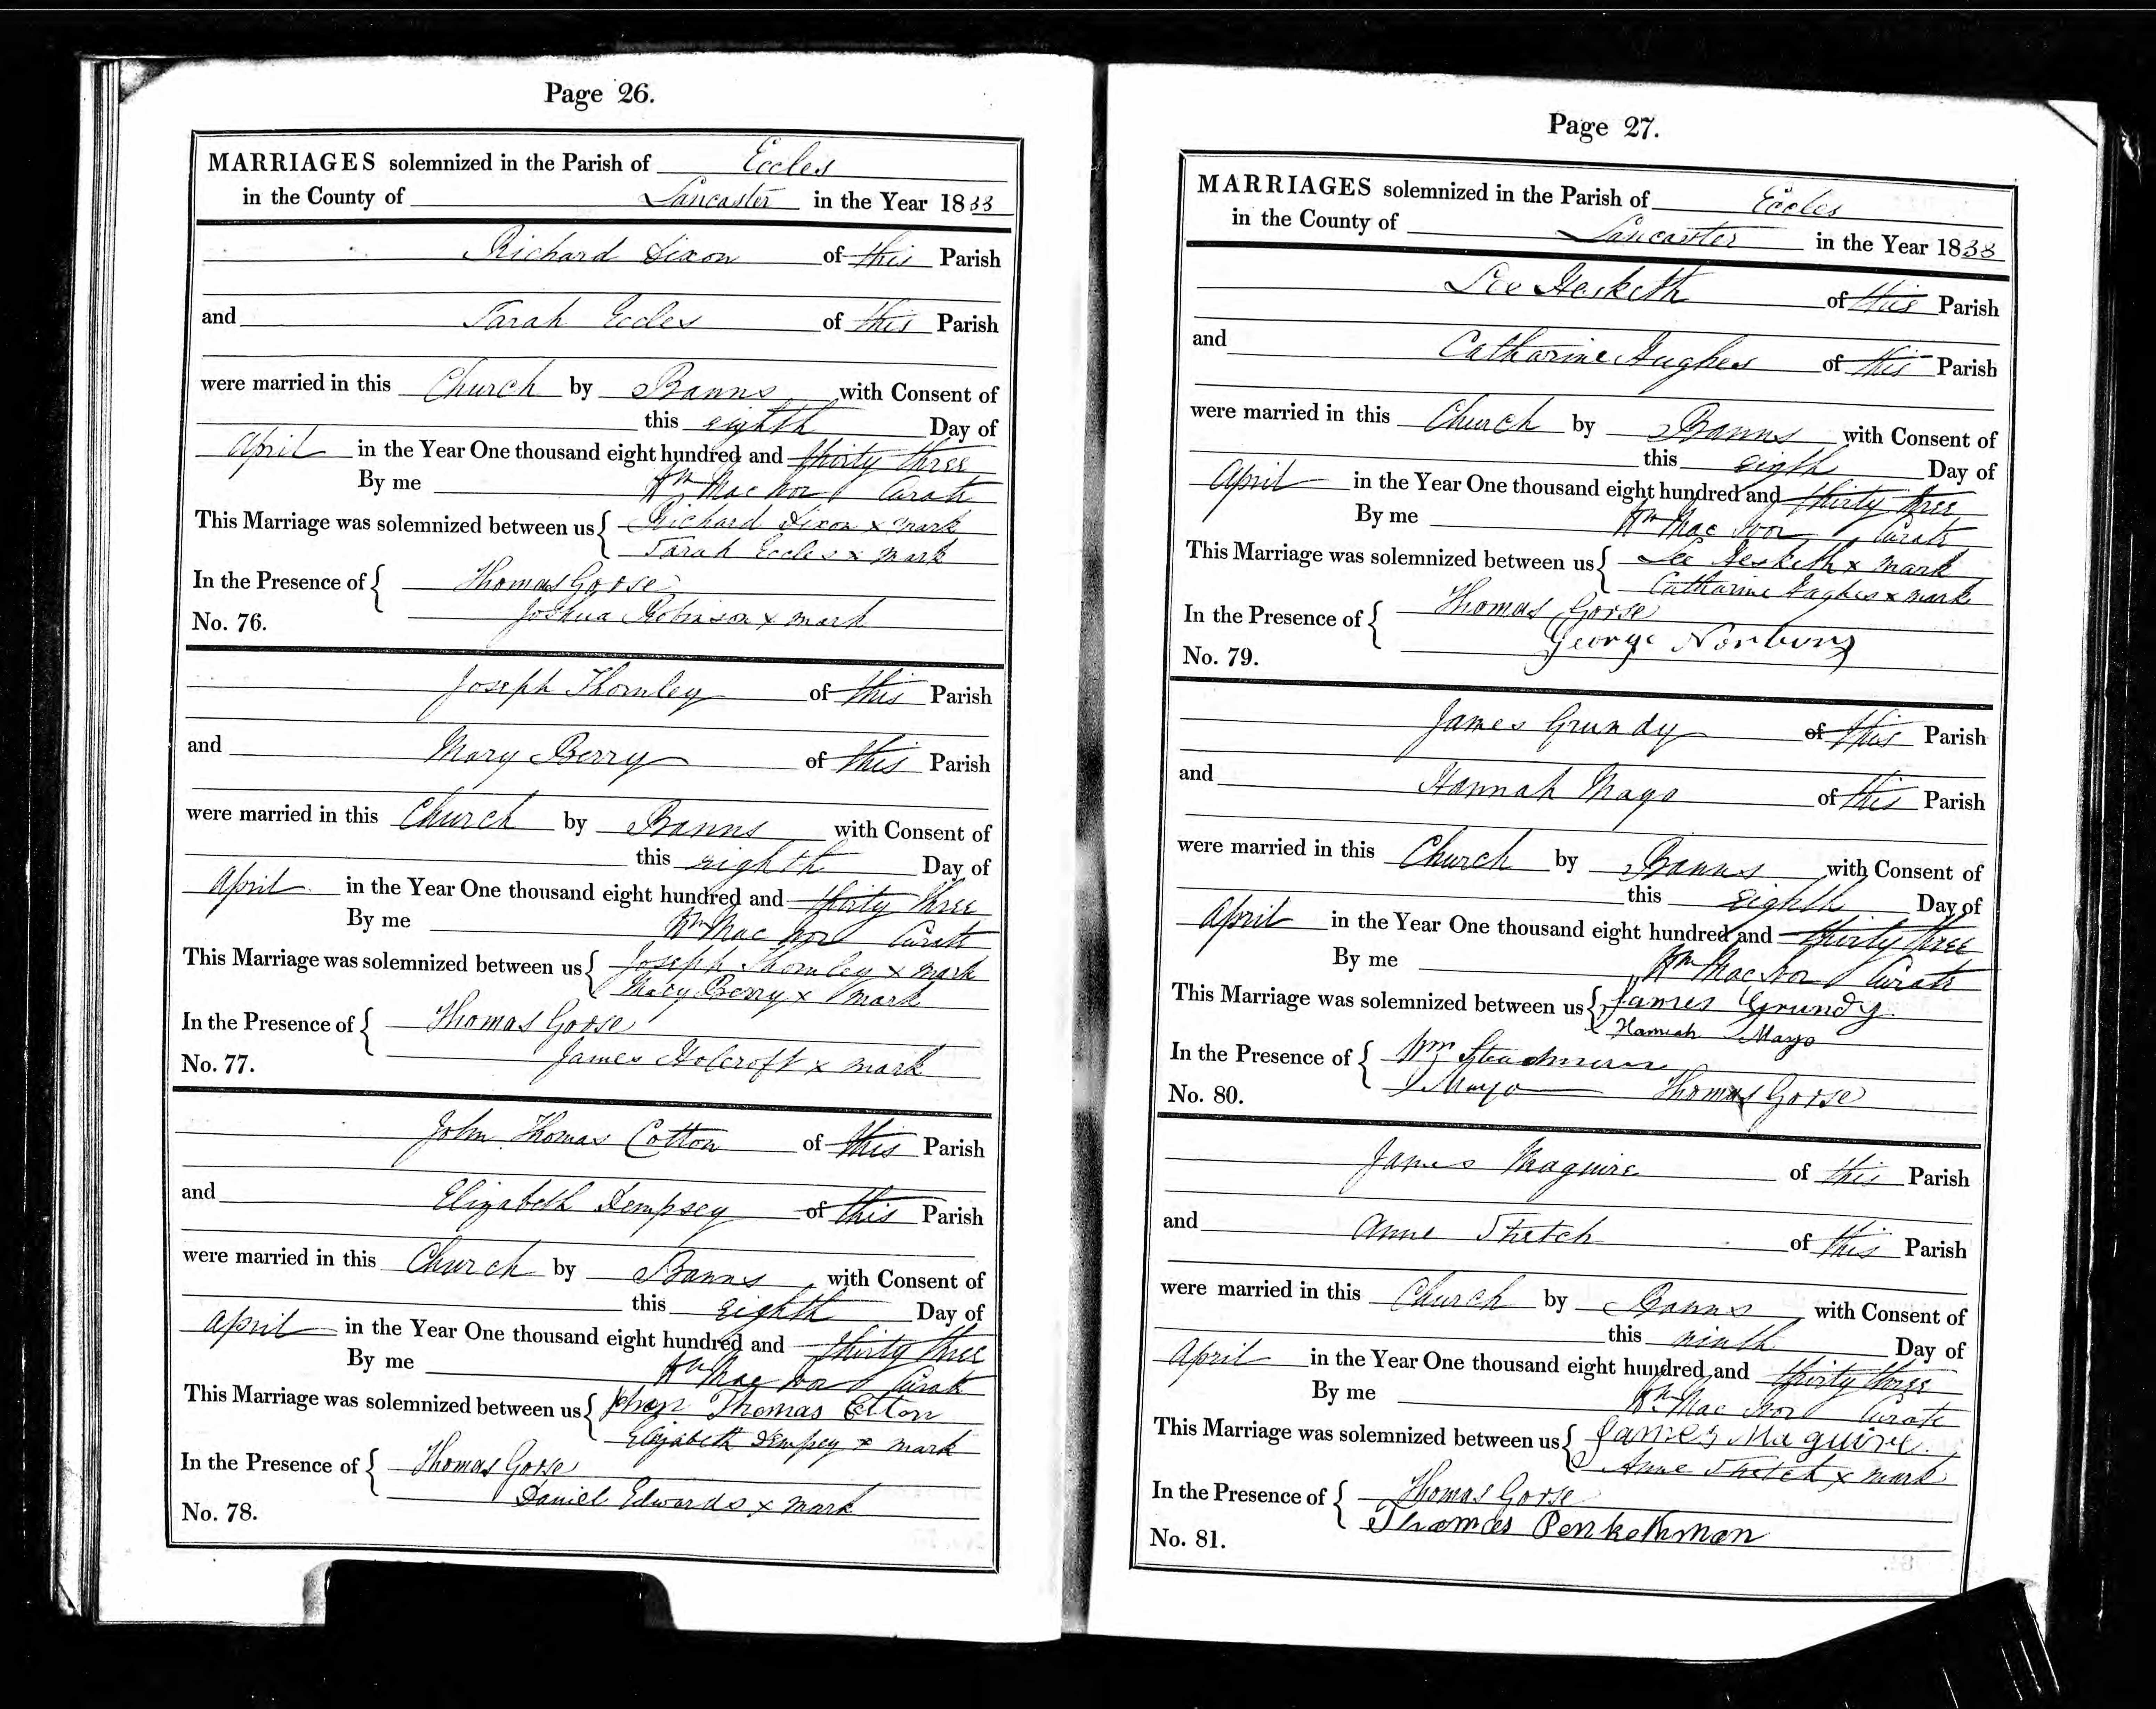 Page 26.
MARRIAGES solemnized in the Parish of Eccles
in the County of Lancaster in the Year 1833
Richard Dixon of this Parish
and Sarah Eccles of this Parish
were married in this Church by Banns with Consent of
this eighth Day of
April in the Year One thousand eight hundred and thirty three
By me Wm Mac Ivor Curate
This Marriage was solemnized between us { Richard Dixon x mark
Sarah Eccles x mark
In the Presence of { Thomas Gorse
Joshua Robinson x mark
No. 76.
Joseph Thornley of this Parish
and Mary Berry of this Parish
were married in this Church by Banns with Consent of
this eighth Day of
April in the Year One thousand eight hundred and thirty three
By me Wm Mac Ivor Curate
This Marriage was solemnized between us { Joseph Thornley x mark
Mary Berry x mark
In the Presence of { Thomas Gorse
James Holcroft x mark
No. 77.
John Thomas Cotton of this Parish
and Elizabeth Dempsey of this Parish
were married in this Church by Banns with Consent of
this eighth Day of
April in the Year One thousand eight hundred and thirty three
By me Wm Mac Ivor Curate
This Marriage was solemnized between us { Thomas
Elizabeth Dempsey x mark
In the Presence of { Thomas Gorse
Daniel Edwards x mark
No. 78.
Page 27.
MARRIAGES solemnized in the Parish of Eccles
in the County of Lancaster in the Year 1833
Lee Hesketh of this Parish
and Catharine Hughes of this Parish
were married in this Church by Banns with Consent of
this eigth Day of
April in the Year One thousand eight hundred and thirty three
By me Wm Mac Ivor Curate
This Marriage was solemnized between us { Lee Hesketh x mark
Catharine Hughes x mark
In the Presence of { Thomas Gorse
George Norbury
No. 79.
James Grundy of this Parish
and Hannah Mayo of this Parish
were married in this Church by Banns with Consent of
this eighth Day of
April in the Year One thousand eight hundred and thirty three
By me Wm Mac Ivor Curate
This Marriage was solemnized between us { James Grundy
Hannah Mayo
In the Presence of { Wm Steadman
J Mayo Thomas Gorse
No. 80.
James Maguire of this Parish
and Anne Stretch of this Parish
were married in this Church by Banns with Consent of
this ninth Day of
April in the Year One thousand eight hundred and thirty three
By me Wm Mac Ivor Curate
This Marriage was solemnized between us { James Maguire
Anne Stretch x mark
In the Presence of { Thomas Gorse
Thomas Penkethman
No. 81.